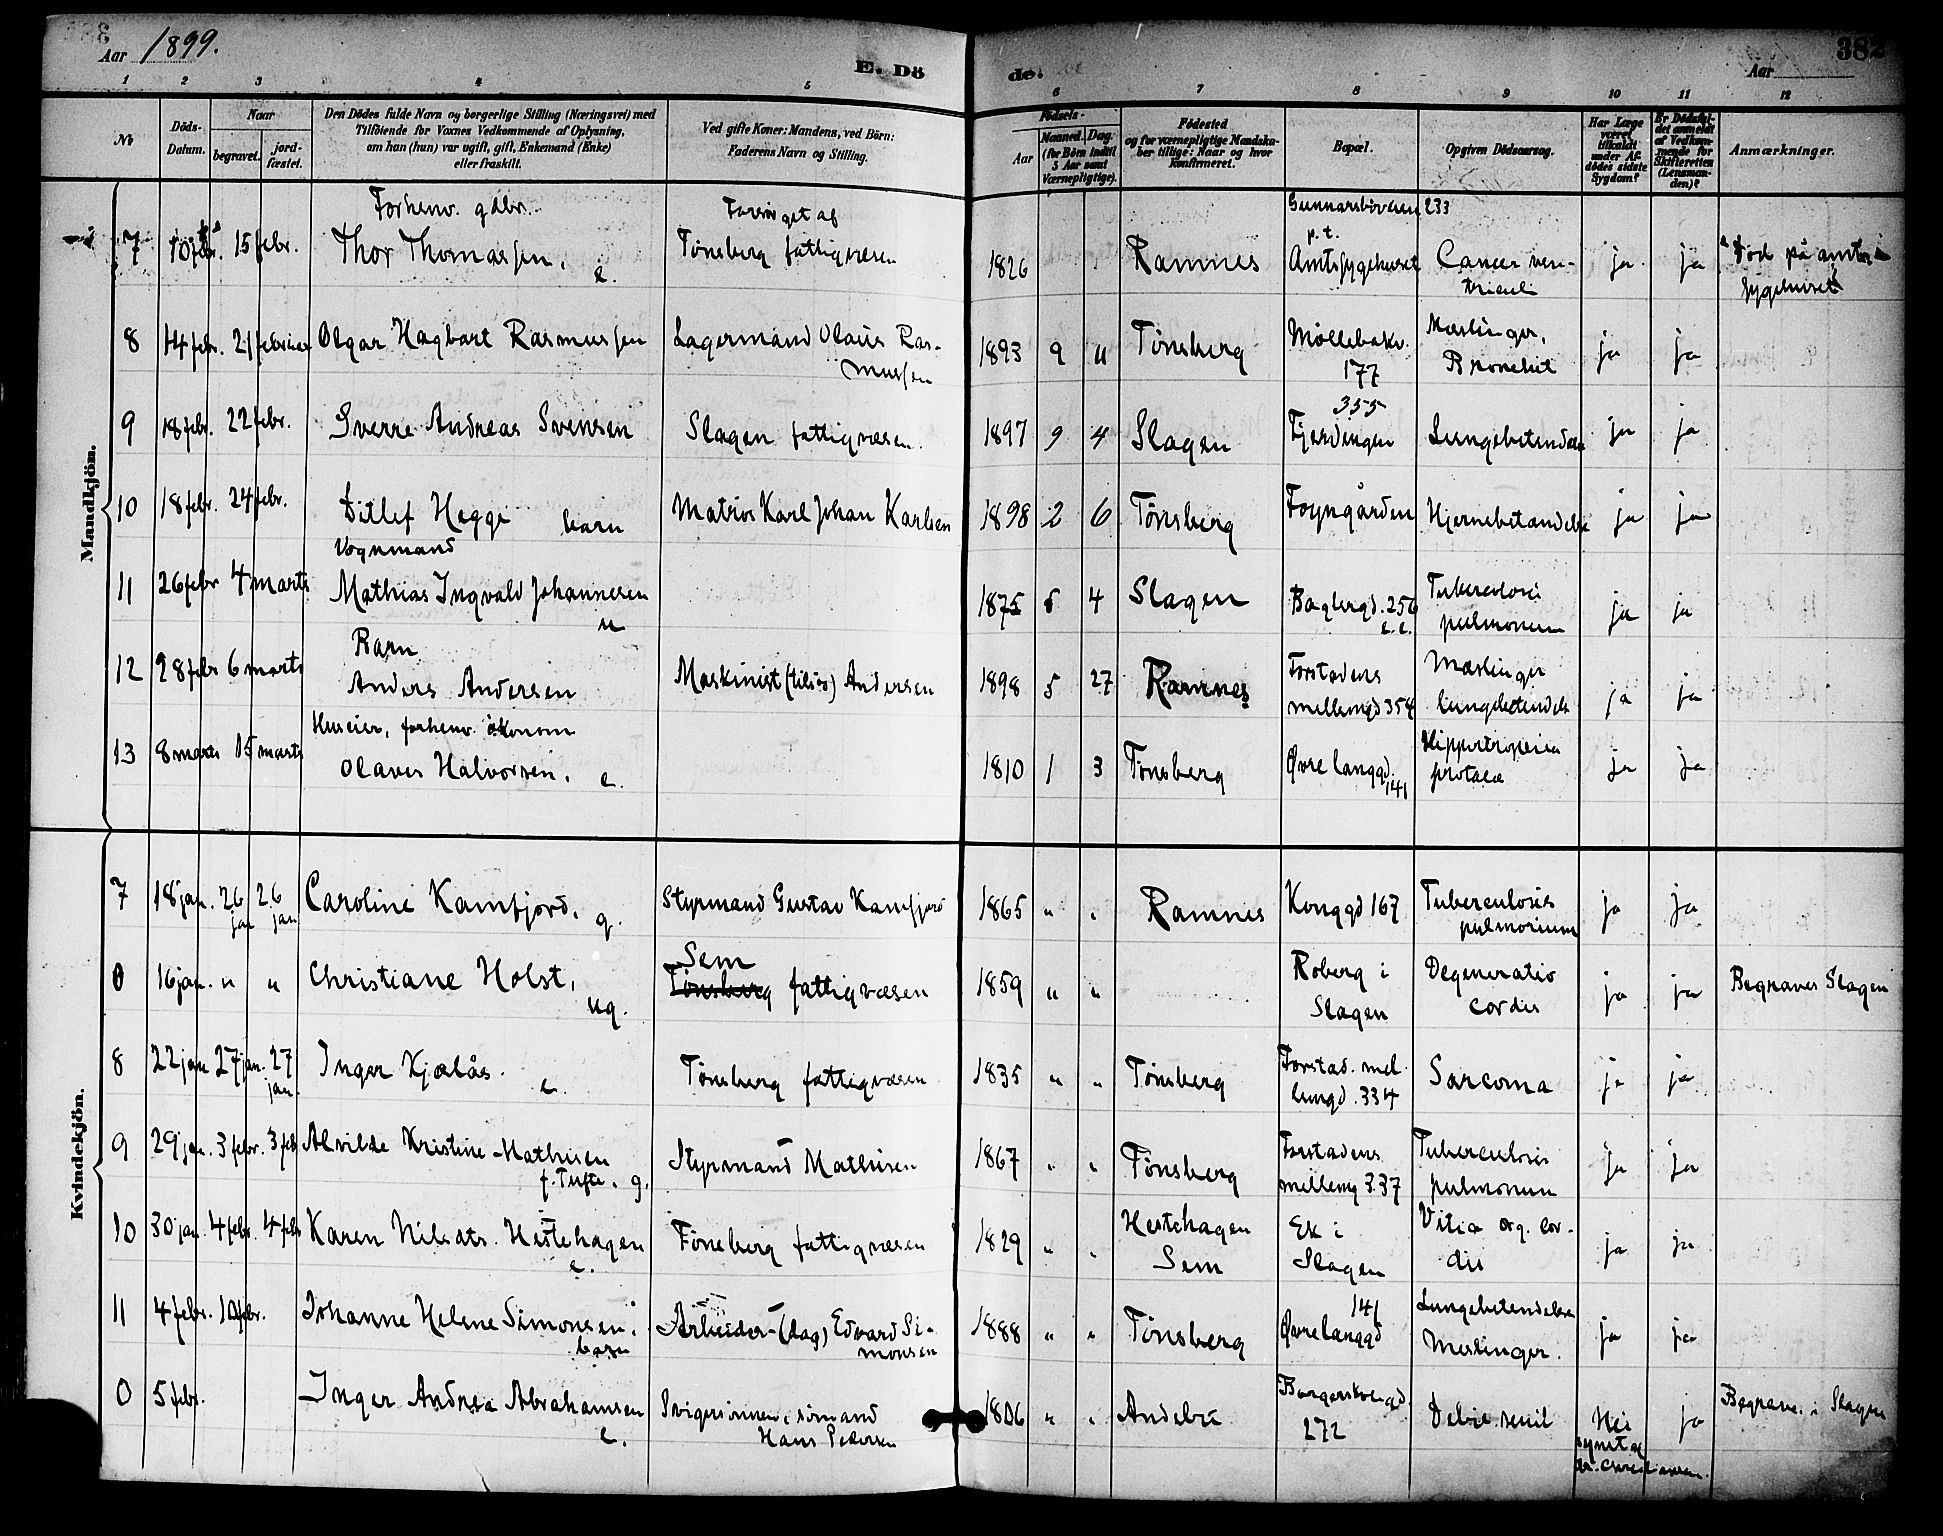 Aar 1899.
E. Dö
de.
Aar
382
1 2 3 4 5 6 7 8 9 10 11 12
No
Döds-Datum.
Naar
begravet.
jord-fæstet.
Den Dödes fulde Navn og borgerlige Stilling (Næringsvei) med
Tilföiende for Voxnes Vedkommende af Oplysning,
om han (hun) var ugift, gift, Enkemand (Enke)
eller fraskilt.
Ved gifte Koner: Mandens, ved Börn:
Faderens Navn og Stilling.
Födsels-
Aar
Maaned.
Dag.
(for Börn indtil
5 Aar samt
Værnepligtige).
Födested
og for værnepligtige Mandska-
ber tillige: Naar og hvor
konfirmeret.
Bopæl.
Opgiven Dödsaarsag.
Har Læge
været
tilkaldt
under Af-
dödes sidste
Sygdom?
Er Dödsfal-
det anmeldt
af Vedkom-
mende for
Skifteretten
(Lensman-
den)?
Anmærkninger.
Mandkjön.
Forhenv. gdbr. Forsörget af Gunnarsbövseien 233
p.t.
7 10 febr. 15 febr. Thor Thomassen. e. Tönsberg fattigvæsen 1826 Ramnes Amtssygehuset Cancer ven-
triculi ja ja Död på amts-
sygehuset
8 14 febr. 21 februar Olgar Hagbart Rasmussen Lagermand Olaus Ras-
mussen 1893 9 " Tönsberg Möllebakv.
177 Mæslinger,
Bronchit ja ja
9 18 febr. 22 febr. Sverre Andreas Svensen Slagen fattigvæsen. 1897 9 4 Slagen 355
Fjerdingen Lungebetændelse ja ja
10 18 febr. 24 febr. Ditlef Hegge barn Matros Karl Johan Karlsen 1898 2 6 Tönsberg Foyngården Hjernebetændelse ja ja
Vognmand
11 26 febr 4 marts Mathias Ingvald Johannesen u 1875 5 4 Slagen Baglergd. 256
e.e. Tuberculosis
pulmonum ja ja
Barn
12 28 febr 6 marts Anders Andersen Maskinist (tilsös) Andersen 1898 5 27 Ramnes Forstadens
mellemgd 354 Mæslinger
lungebetændelse ja ja
Huseier, forhenv. ökonom
13 8 marts 15 marts Olaves Halvorsen. e. 1810 1 3 Tönsberg Övre langgd.
141 Hippertropeia
protata ja ja
Kvindekjön.
7 18 jan. 26 jan 26 jan Caroline Kamfjord. g. Styrmand Gustav Kamfjord 1865 " " Ramnes Konggd 167 Tuberculosis
pulmonum ja ja
0 16 jan. " " Christiane Holst, ug. Sem
Tönsberg fattigvæsen 1859 " " Roberg i
Slagen Degeneratio
cordis ja ja Begraves Slagen
8 22 jan 27 jan. 27 jan. Inger Kjælås. e. Tönsberg fattigvæsen 1835 " " Tönsberg Forstad. mel
lemgd. 334 Sarcoma ja ja
9 29 jan. 3 febr. 3 feb Alvilde Kristine Mathisen
f. Tufte. g. Styrmand Mathisen 1867 " " Tönsberg Forstadens
mellemg 337 Tuberculosis
pulmonum ja ja
10 30 jan. 4 febr. 4 febr Karen Nilsdtr. Hestehagen
e. Tönsberg fattigvæsen 1829 " " Hestehagen
Sem Ek i
Slagen Vitia org. cor-
dis ja ja
11 4 febr. 10 febr. Johanne Helene Simonsen.
barn Arbeider-(dag) Edvard Si-
monsen 1888 " " Tönsberg 141
Övre langgd Lungebetændelse
Meslinger. ja ja
0 5 febr. Inger Andrea Abrahamsen
e. Svigersönnen sömand
Hans Pedersen 1806 " " Andebu
272 Debil. senil Nei
synet af
dr. ja Begrave. i Slagen